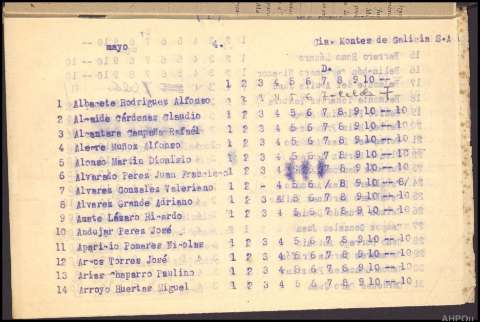 mayo 4.- Cia. Montes de Galicia S.A
D.
1 2 3 4 5 6 7 8 9 10 -- 10
1 Albarete Rodriguez Alfonso
2 Al-aide Cárdenas Claudio
3 Alcantara Campaña Rafaél 1 2 3 4 5 6 7 8 9 10 -- 10
4 Alegre Muñoz Alfonso 1 2 3 4 5 6 7 8 9 10 -- 10
5 Alonso Martin Dionisio 1 2 3 4 5 6 7 8 9 10 -- 10
6 Alvarado Perez Juan Francis-o 1 2 3 4 8 9 10 -- 10
7 Alvarez Gonzalez Valeriano 1 2 - 4 5 6 / 8 9 10 -- 8/
8 Alvarez Grande Adriano 1 2 3 4 5 6 7 8 9 10 -- 10
9 Amate Lázaro Ri-ardo 1 2 3 4 5 6 7 8 9 10 -- 10
10 Andujar Perez José 1 2 3 4 5 6 7 8 9 10 -- 10
11 Apari-io Pomares Ni-olas 1 2 3 4 5 6 7 8 9 10 -- 10
12 Ar-os Torres José 1 2 3 4 5 6 7 8 9 10 -- 10
13 Arias Chaparro Paulino 1 2 3 4 5 6 7 8 9 10 -- 10
14 Arroyo Huertas Miguel 1 2 3 4 5 6 7 8 9 10 -- 10